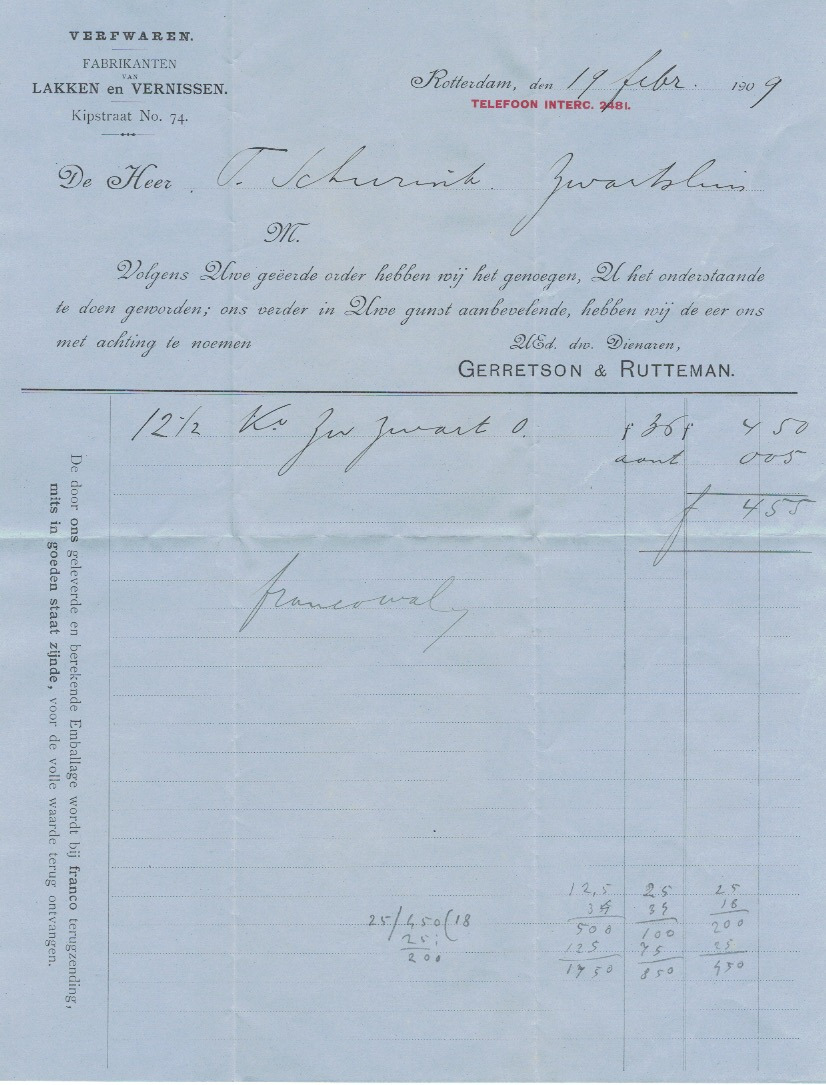 VERFWAREN.
FABRIKANTEN
VAN
LAKKEN en VERNISSEN.
Kipstraat No. 74.
Rotterdam, den 19 febr. 1909
TELEFOON INTERC. 2481.
De Heer T. Schurink. Zwartsluis
M.
Volgens Uwe geëerde order hebben wij het genoegen, U het onderstaande
te doen geworden; ons verder in Uwe gunst aanbevelende, hebben wij de eer ons
met achting te noemen UEd. dw. Dienaren,
GERRETSON & RUTTEMAN.
12 1/2 Ko Zw zwart 0. f 36 f 4 50
aant 005
f 455
De door ons geleverde en berekende Emballage wordt bij franco terugzending,
mits in goeden staat zijnde, voor de volle waarde terug ontvangen.
12,5 25 25
34 18
25/450(18 500 100 200
25 125 75 25
200 1750 850 450